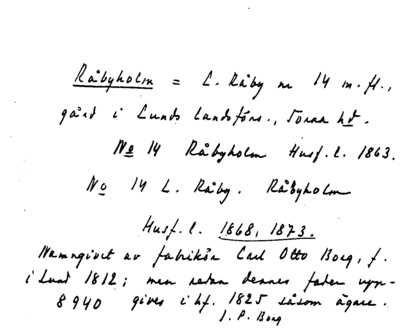 Råbyholm = L. Råby nr 14 m.fl.,
gård i Lunds landsförs., Torna hd.
No 14 Råbyholm Husf.l. 1863.
No 14 L. Råby. Råbyholm
Husf.l. 1868, 1873.
Namngivet av fabrikör Carl Otto Borg, f.
i Lund 1812; men redan dennes fader upp-
8940 gives i hf. 1825 såsom ägare.
I.P. Borg